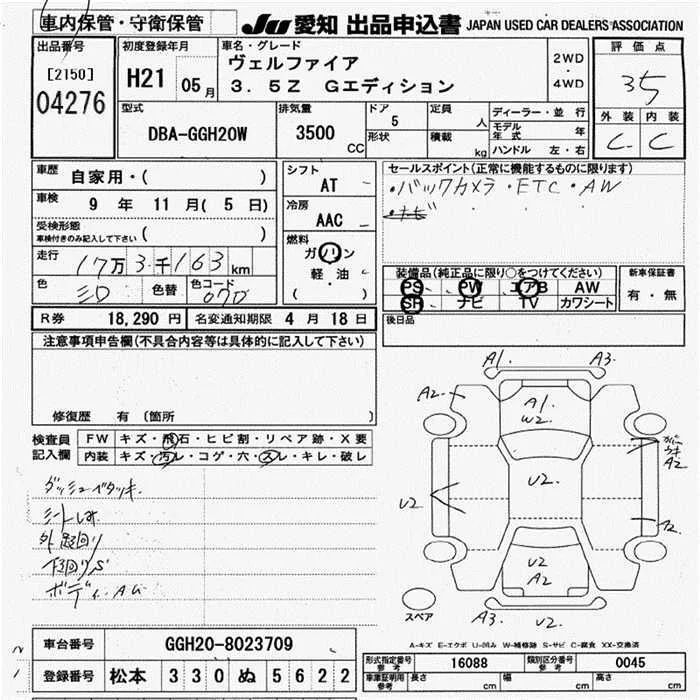 車内保管・守衛保管
JU 愛知 出品申込書 JAPAN USED CAR DEALERS ASSOCIATION
出品番号
[2150]
04276
初度登録年月
H21 05月
車名・グレード
ヴェルファイア
3．5Z Gエディション
2WD
・
4WD
評価点
35
外装 内装
C C
型式
DBA-GGH20W
排気量
3500 CC
ドア
5
形状
定員
人
積載
kg
ディーラー・並行
モデル年式 年
ハンドル 左・右
車歴 自家用・( )
車検 9年 11月( 5日)
受検形態
車検付きのみ記入して下さい ( )
走行 17万3千163km
色 色替 色コード
070
シフト
AT
冷房
AAC
燃料
ガソリン
軽・油
( )
セールスポイント(正常に機能するものに限ります)
・バックカメラ・ETC・AW
・ナビ ・ ・ ・
装備品(純正品に限り○をつけてください)
PS PW エアB AW
SR ナビ TV カワシート
新車保証書
有・無
R券 18,290円 名変通知期限 4月18日
後日品
注意事項申告欄(不具合内容等は具体的に記入して下さい)
修復歴 有 〔箇所 〕
検査員記入欄
FW キズ・飛石・ヒビ割・リペア跡・X要
内装 キズ・汚レ・コゲ・穴・スレ・キレ・破レ
ダッシュベタツキ
シートしみ
外廻り
下廻りS
ボディ
A1. A3.
A2.
A1.
W2.
カバー
キキ
A2
U2.
U2
U2
A2
A3. U2.
スペア
A-キズ E-エクボ U-凹み W-補修跡 S-サビ C-腐食 XX-交換済
車台番号 GGH20-8023709
登録番号 松本 330 ぬ 5622
型式指定番号 参考 16088 類別区分番号 参考 0045
車庫証明用参考 長さ cm 幅 cm 高さ cm